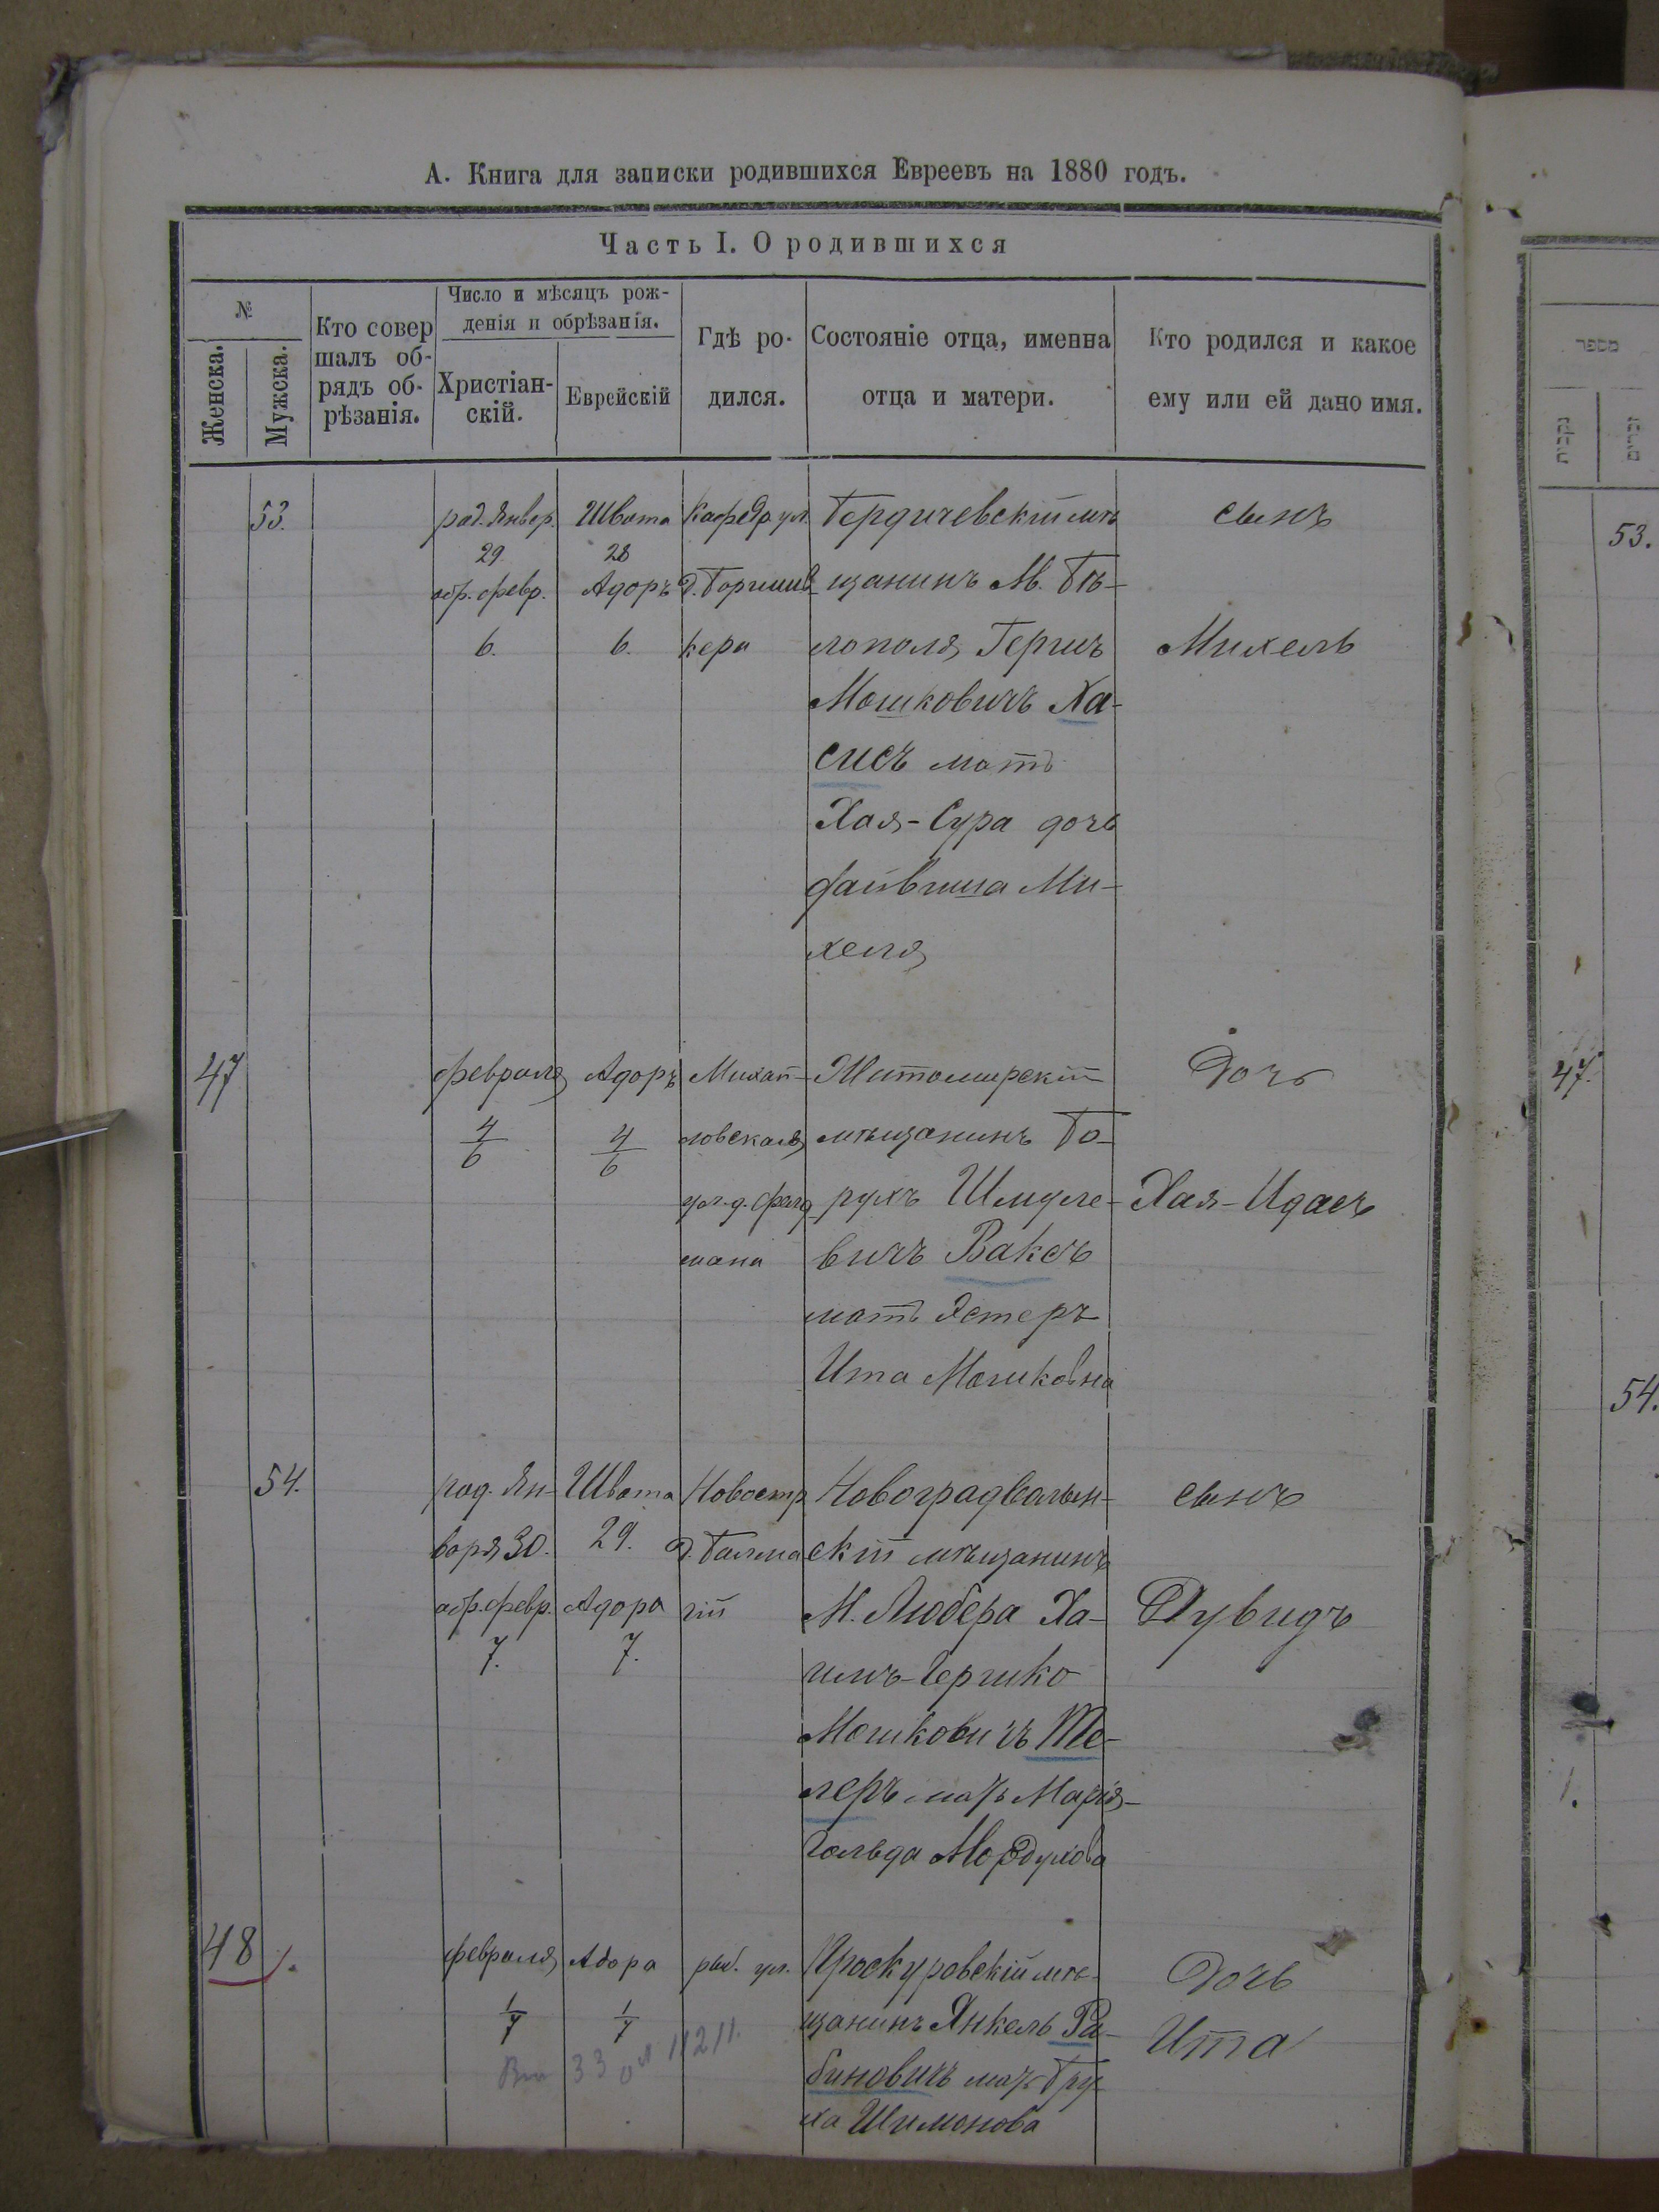 А. Книга для записки родившихся Евреевъ на 1880 годъ.
Часть I. О родившихся
№
Женска.
Мужска.
Кто совер
шалъ об-
рядъ об-
рѣзанія.
Число и мѣсяцъ рож-
денія и обрѣзанія.
Христіан-
скій.
Еврейскій
Гдѣ ро-
дился.
Состояніе отца, именна
отца и матери.
Кто родился и какое
ему или ей дано имя.
53.
род. Январ.
29
обр. февр.
6.
Швота
28
Адоръ
6.
Кафедр. ул.
кера
Бердичевскій мѣ
щанинъ М. Бѣ-
лополя Гершъ
Мошковичъ Ха-
сисъ мать
Хая-Сура дочь
Файвиша Ми-
хеля
сынъ
Михель
47
февраля
4
6
Адоръ
4
6
Михай-
ловская
ул. д.
мана
Житомирскій
мѣщанинъ Бо-
рухъ Шмуле-
вичъ Ваксъ
мать Эстеръ
Ита Мошковна
Дочь
Хая-Идась
54.
род. Ян-
варя 30.
обр. февр.
7.
Швота
29.
Адора
7.
Новостр
гій
Новоградволын-
скій мѣщанинъ
М. Любера Ха-
имъ-Гершко
Мошковичъ Те-
леръ мать Марія-
Гольда Мордухова
сынъ
Дувидъ
48
февраля
1
7
Адора
1
7
рыб. ул.
Проскуровскій мѣ-
щанинъ Янкель Ра-
биновичъ мать Бру-
ха Шимонова
Дочь
Ита
מספר
נקבות
זכרים
53.
47.
54.